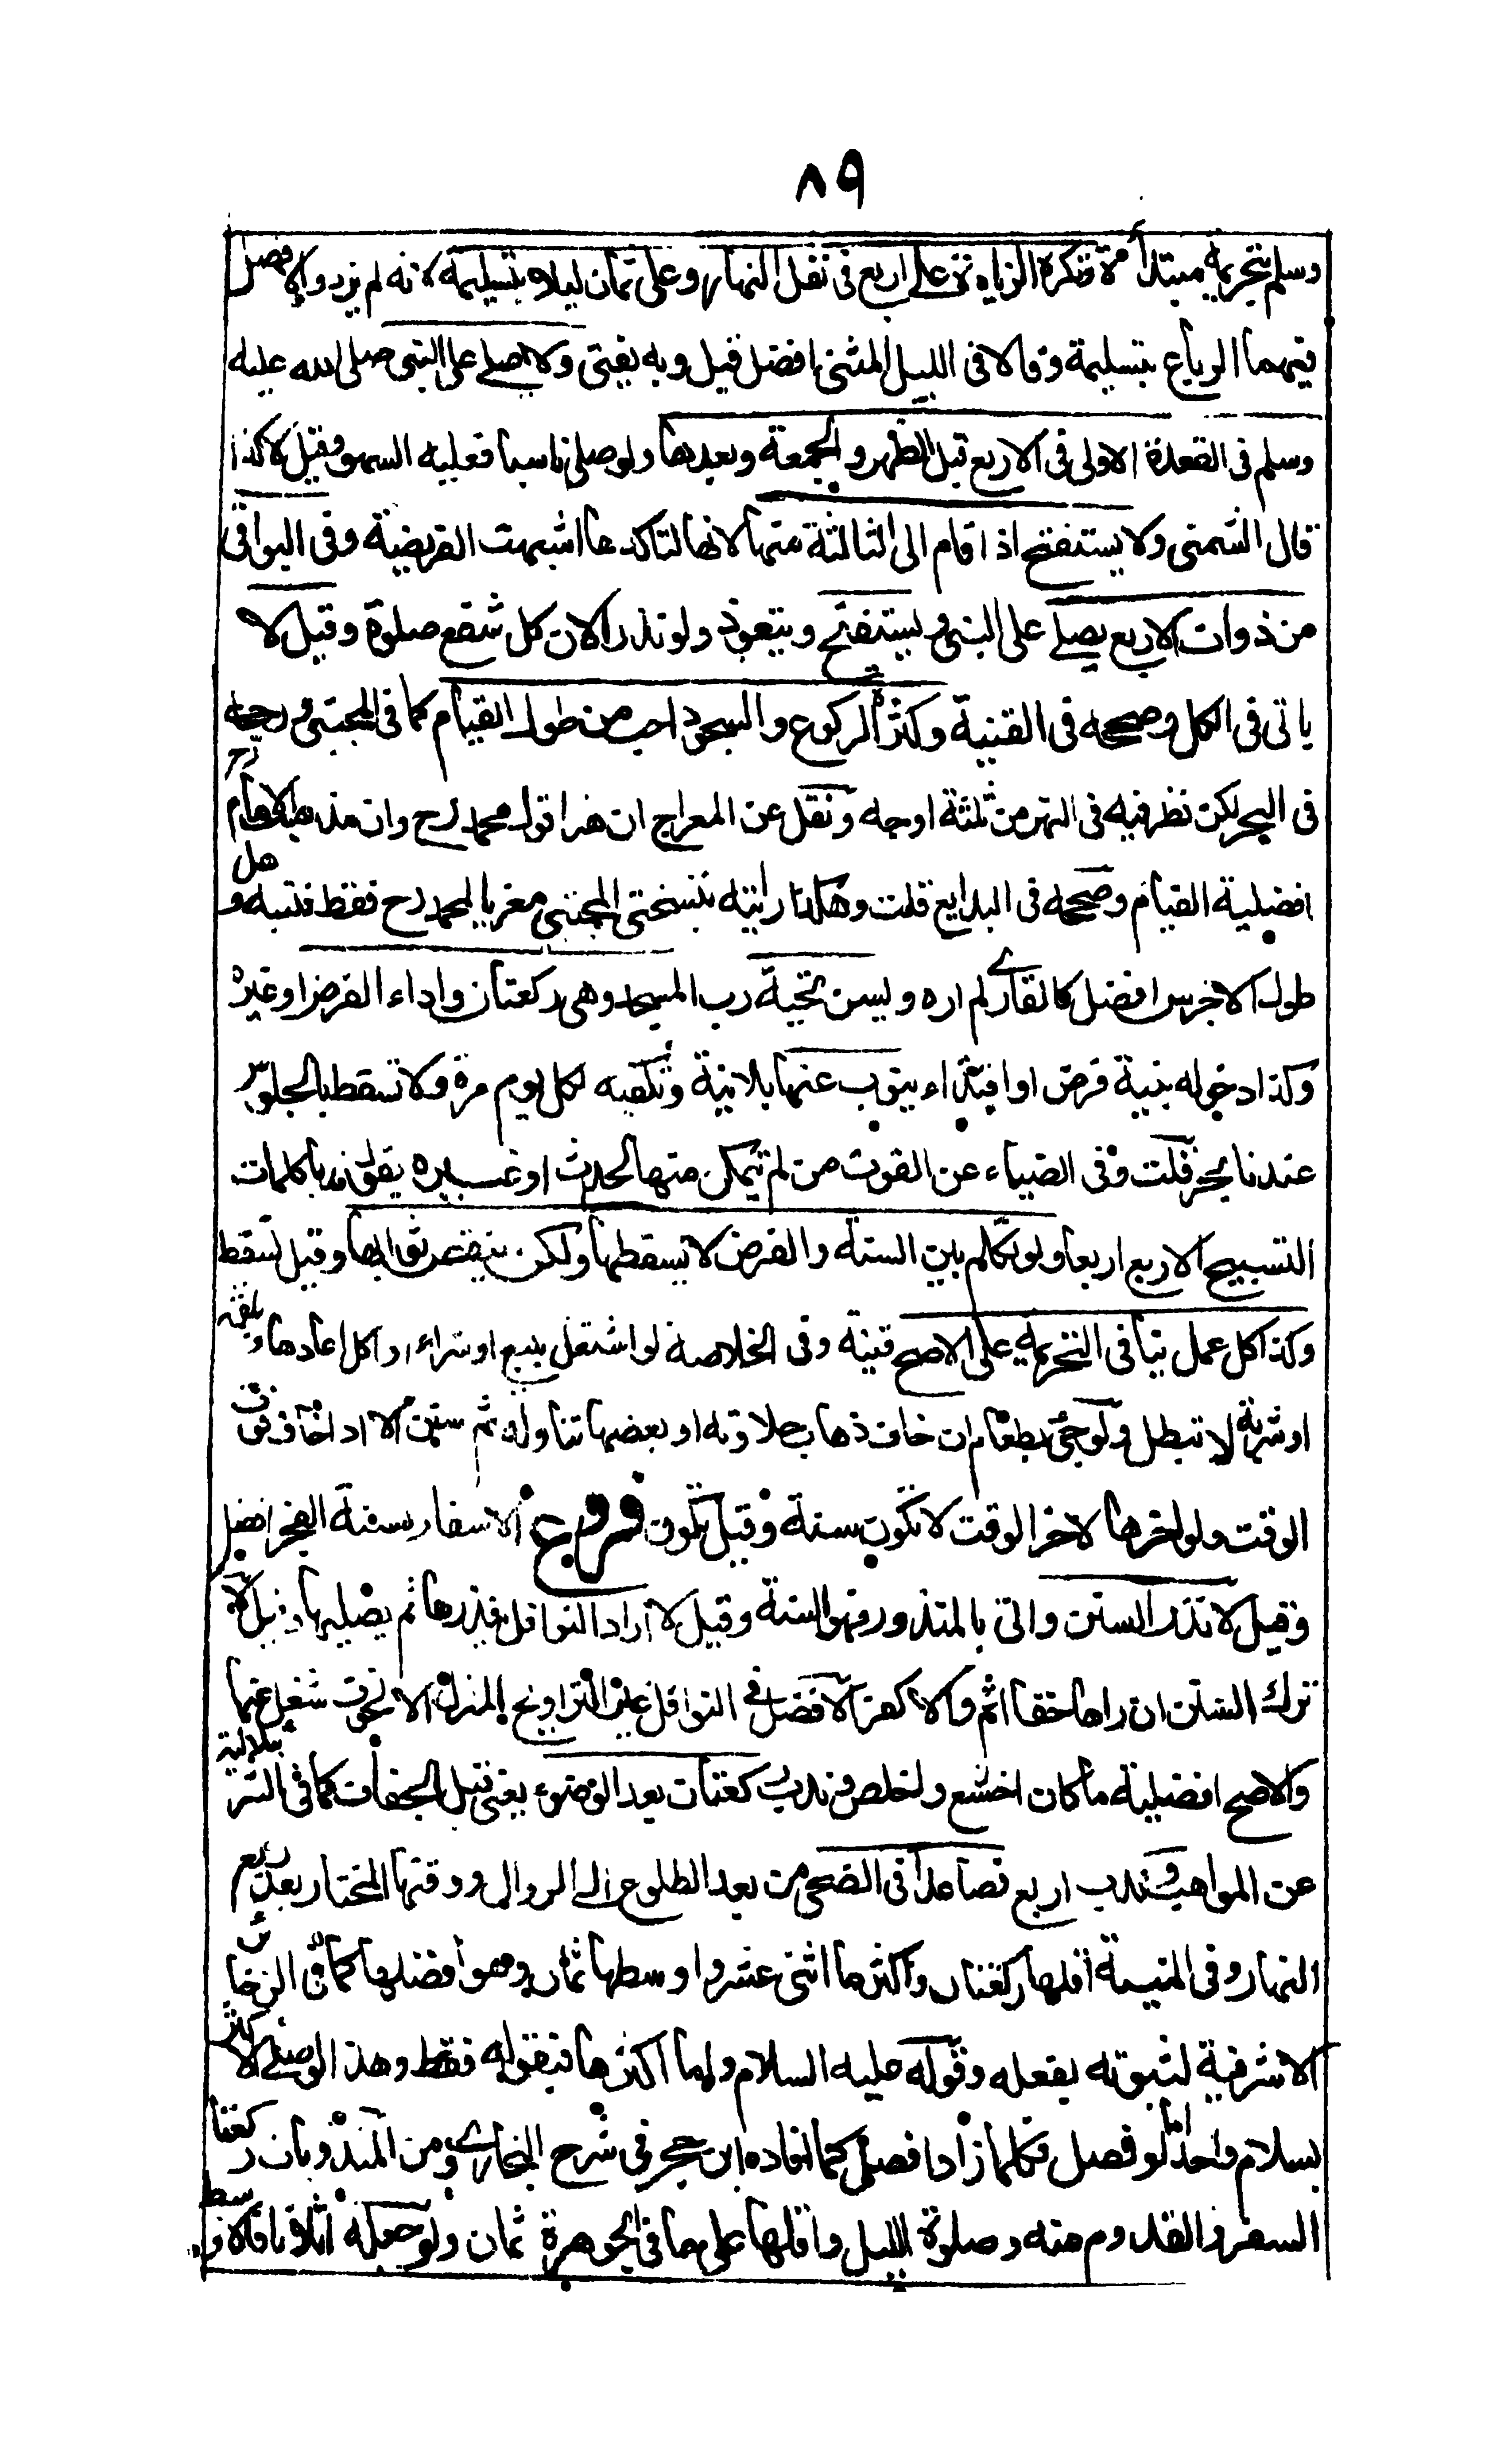 ٨٩
وسلم بتحريمة مبتدأة وتكره الزيادة على اربع فى نفل النهار وعلى ثمان ليلا بتسليمة لانه لم يرد والافضل
فيهما الرباع بتسليمة وقالا فى الليل المثنى افضل قيل وبه يفتى ولا يصلى على النبى صلى الله عليه
وسلم فى القعدة الاولى فى الاربع قبل الظهر والجمعة وبعدها ولو صلى ناسيا فعليه السهو وقيل لا كذا
قال الشمنى ولا يستفتح اذا قام الى الثالثة منها لانها لتاكدها اشبهت الفريضة وفى البواقى
من ذوات الاربع يصلى على النبى ويستفتح ويتعوذ ولو نذرا لان كل شفع صلوة وقيل لا
ياتى فى الكل وصححه فى القنية وكثرة الركوع والسجود احب من طول القيام كما فى المجتبى ورجحه
فى البحر لكن نظر فيه فى النهر من ثلثة اوجه ونقل عن المعراج ان هذا قول محمد رح وان مذهب الامام رح
افضلية القيام وصححه فى البدايع قلت وهكذا رايته بنسختى المجتبى معزيا لمحمد رح فقط فتنبه وهل
طول الاخرس افضل كالقارى لم اره ويسن تحية رب المسجد وهى ركعتان واداء الفرض او غيره
وكذا دخوله بنية فرض او اقتداء ينوب عنها بلانية وتكفيه لكل يوم مرة ولا تسقط بالجلوس
عندنا بحر قلت وفى الضياء عن القوت من لم يتمكن منها لحدث او غيره يقول ندبا كلمات
التسبيح الاربع اربعا ولو تكلم بين السنة والفرض لا يسقطها ولكن ينقص ثوابها وقيل تسقط
وكذا كل عمل ينافى التحريمة على الاصح قنية وفى الخلاصة لو اشتغل ببيع او شراء او اكل اعادها وبلقمة
او شربة لا تبطل ولو جئ بطعام ان خاف ذهاب حلاوته او بعضها تناوله ثم سنن الا اذا خاف فوت
الوقت ولو اخرها لاخر الوقت لا تكون سنة وقيل تكون فروع الاسفار بسنة الفجر افضل
وقيل لا نذر السنن واتى بالمنذور فهو السنة وقيل لا اراد النوافل ينذرها ثم يصليها وقيل لا
ترك السنن ان راها حقا اثم والا كفر الافضل فى النوافل غير التراويح المنزل الا لخوف شغل عنها
والاصح افضلية ما كان اخشع واخلص وندب ركعتان بعد الوضوء يعنى قبل الجفاف كما فى الشرنبلالية
عن المواهب وندب اربع فصاعدا فى الضحى من بعد الطلوع الى الزوال ووقتها المختار بعد ربع
النهار وفى المنية اقلها ركعتان واكثرها اثنى عشر واوسطها ثمان وهو افضلها كما فى الذخائر
الاشرفية لثبوته بفعله وقوله عليه السلام واما اكثرها فبقوله فقط وهذا لو صلى الاكثر
بسلام واحد اما لو فصل فكلما زاد افضل كما افاده ابن حجر فى شرح البخارى ومن المندوبات ركعتا
السفر والقدوم منه وصلوة الليل واقلها على ما فى الجوهرة ثمان ولو جعله اثلاثا فالاوسط